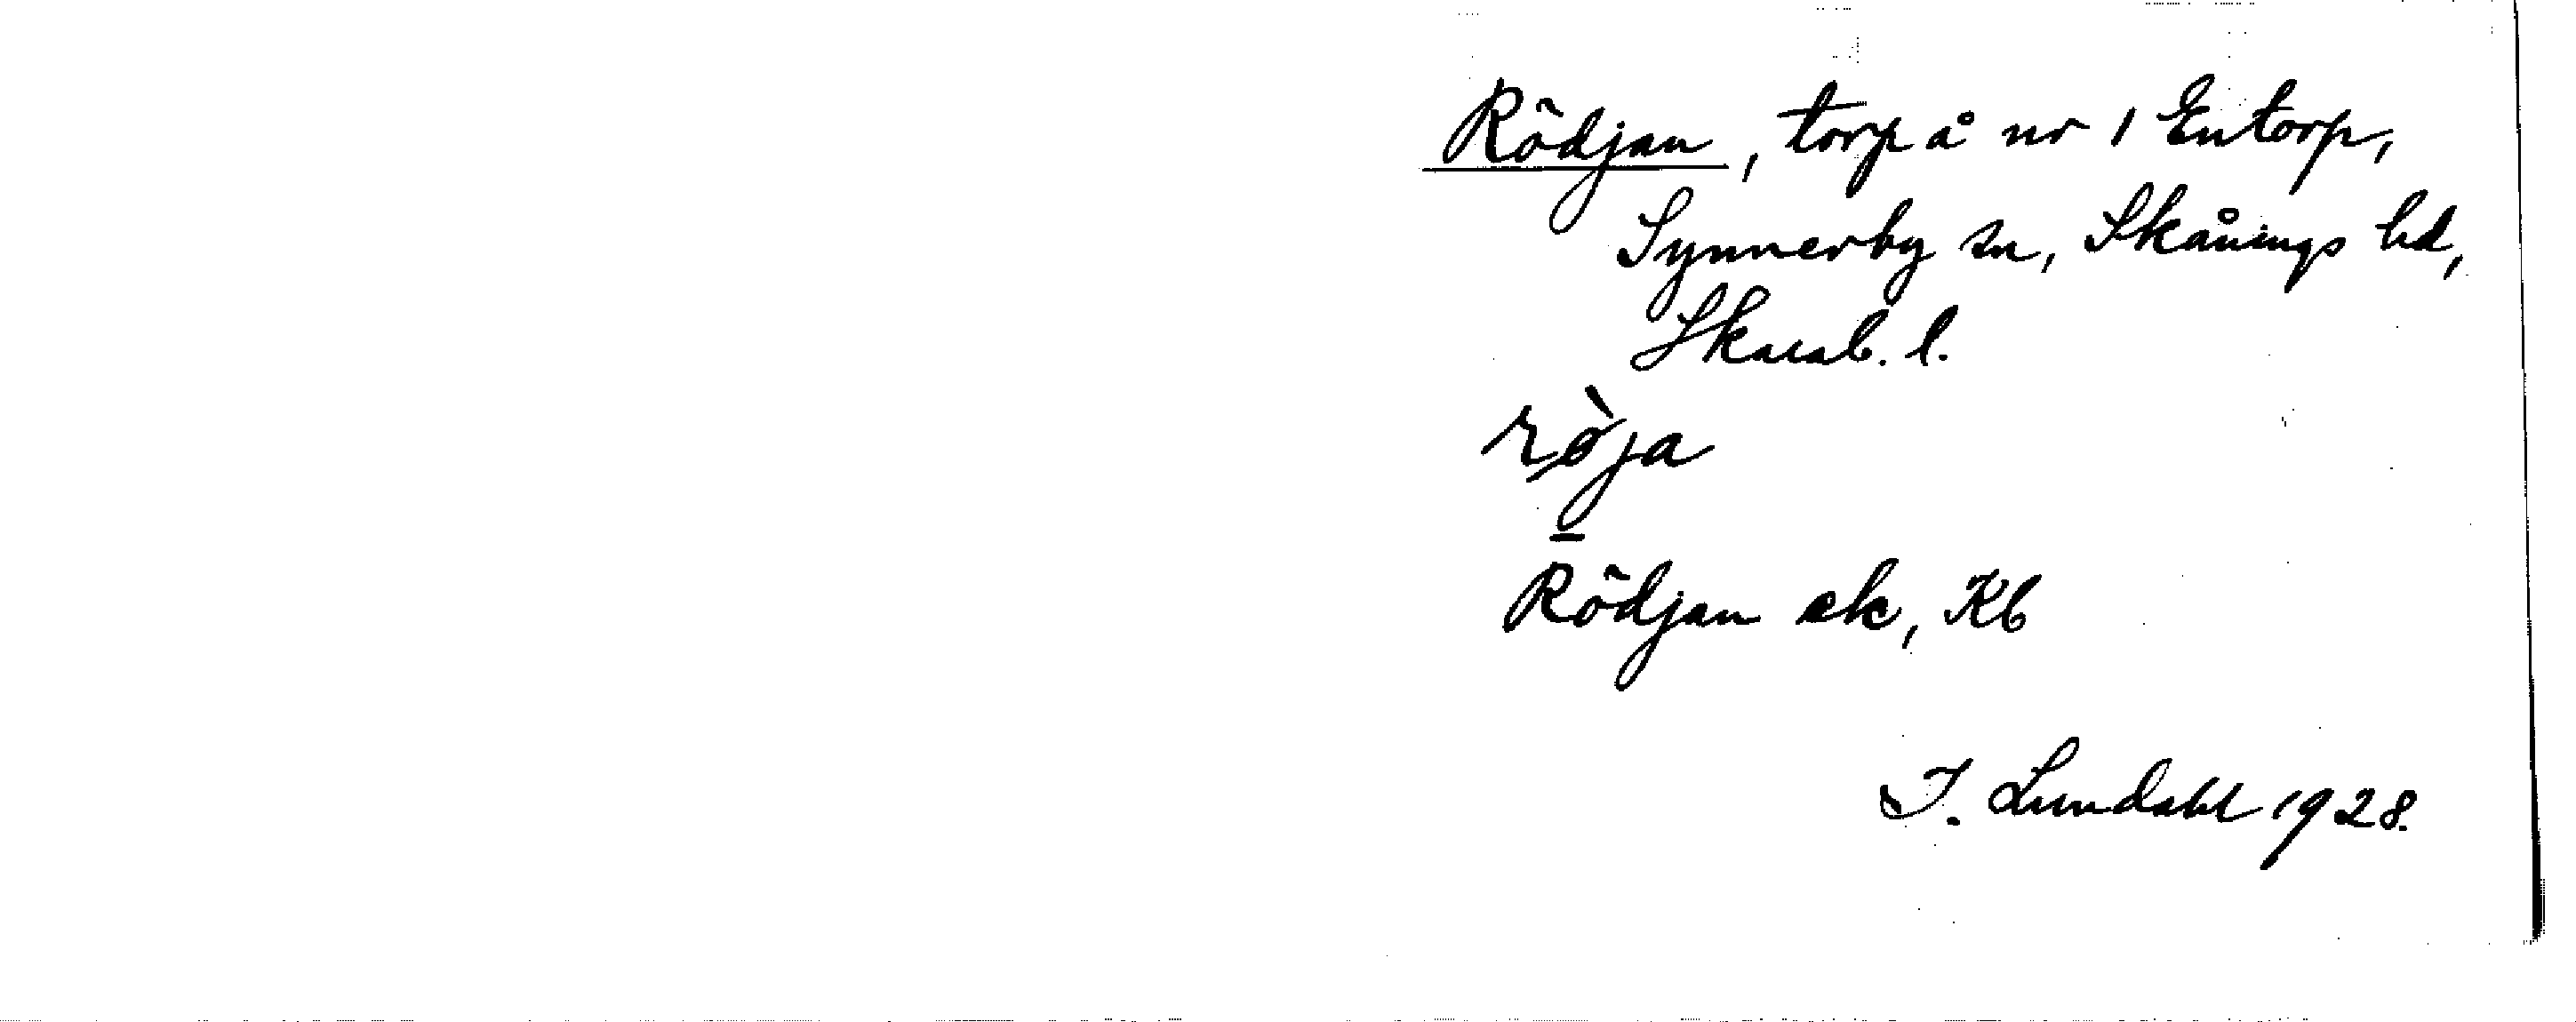 Rödjan, torp å nr 1 Entorp,
Synnerby sn, Skånings hd,
Skarab. l.
rø̀ja
Rödjan ek, Kb
I. Lundahl 1928.